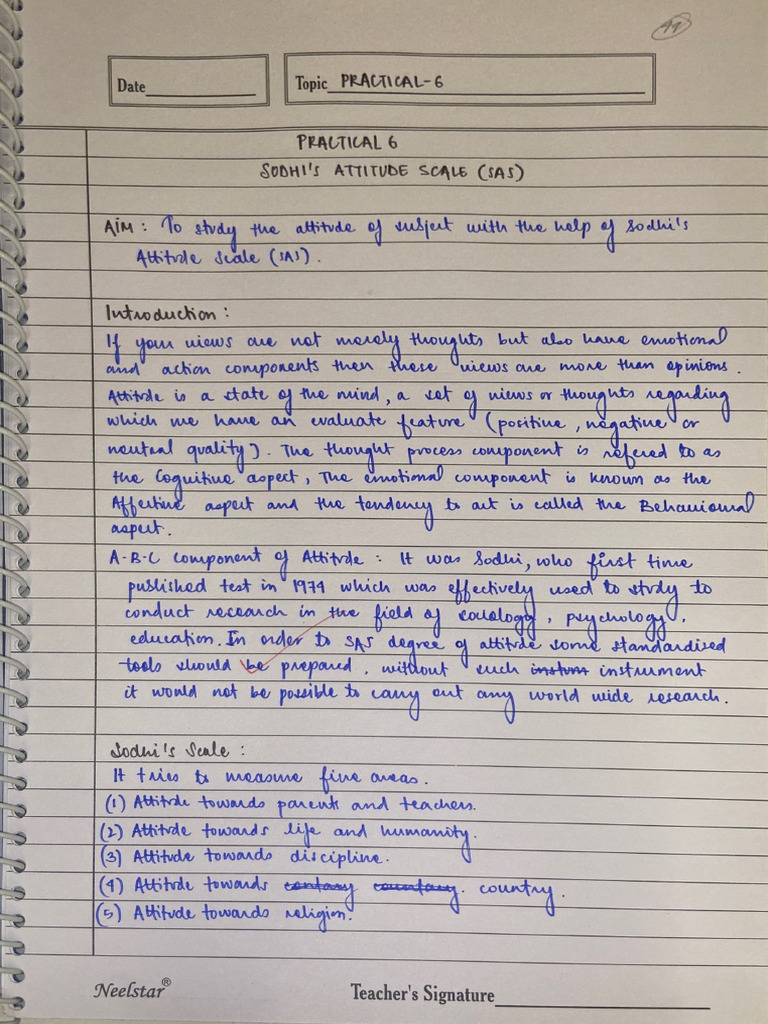 49
Date
Topic PRACTICAL-6
PRACTICAL 6
SODHI'S ATTITUDE SCALE (SAS)
AIM : To study the attitude of subject with the help of Sodhi's
Attitude Scale (SAS).
Introduction :
If your views are not merely thoughts but also have emotional
and action components then these views are more than opinions.
Attitude is a state of the mind, a set of views or thoughts regarding
which we have an evaluate feature (positive, negative or
neutral quality). The thought process component is refered to as
the Cognitive aspect, The emotional component is known as the
Affective aspect and the tendency to act is called the Behavioural
aspect.
A-B-C Component of Attitude : It was Sodhi, who first time
published test in 1974 which was effectively used to study to
conduct research in the field of sociology, psychology,
education. In order to SAS degree of attitude some standardised
tools should be prepared. without such instrument
it would not be possible to carry out any world wide research.
Sodhi's Scale :
It tries to measure five areas.
(1) Attitude towards parents and teachers.
(2) Attitude towards life and humanity.
(3) Attitude towards discipline.
(4) Attitude towards country.
(5) Attitude towards religion.
Neelstar®
Teacher's Signature